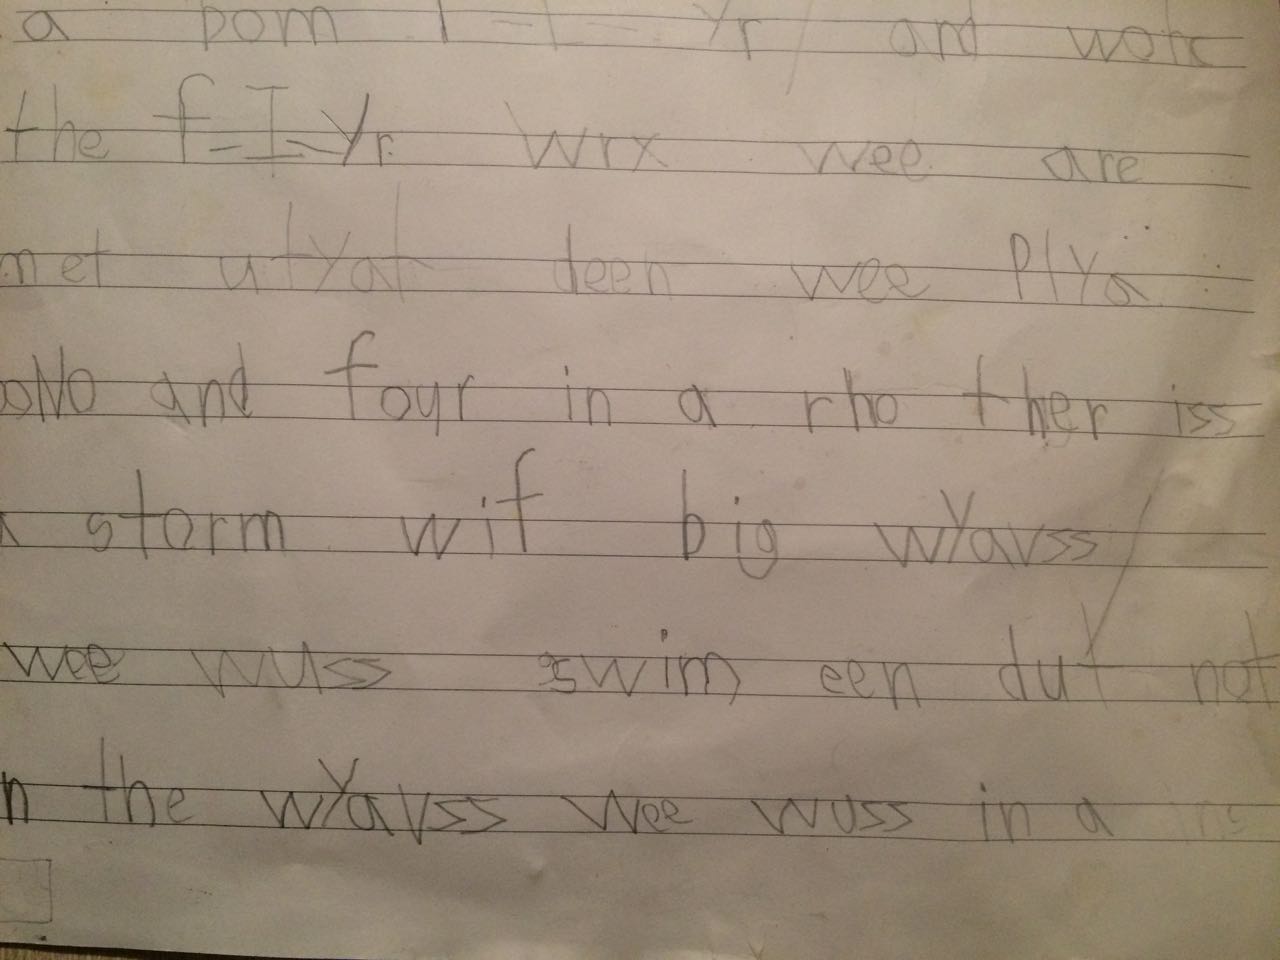 a bom f-I-Yr and wotc
the f-I-Yr wrx wee are
met utyat deen wee PlYa
oNo and foyr in a rho ther iss
storm wif big wYavss
wee wuss swim een dut not
n the wYavss wee wuss in a